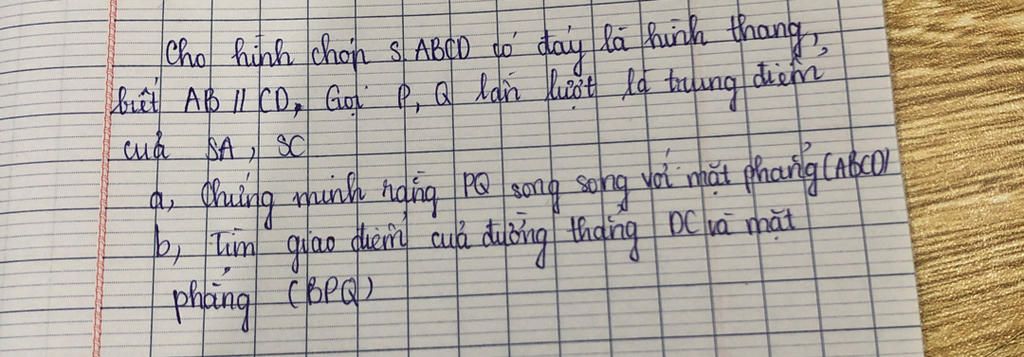 Cho hình chóp S.ABCD có đáy là hình thang,
biết AB // CD, Gọi P, Q lần lượt là trung điểm
của SA, SC
a, Chứng minh rằng PQ song song với mặt phẳng (ABCD)
b, Tìm giao điểm của đường thẳng DC và mặt
phẳng (BPQ)